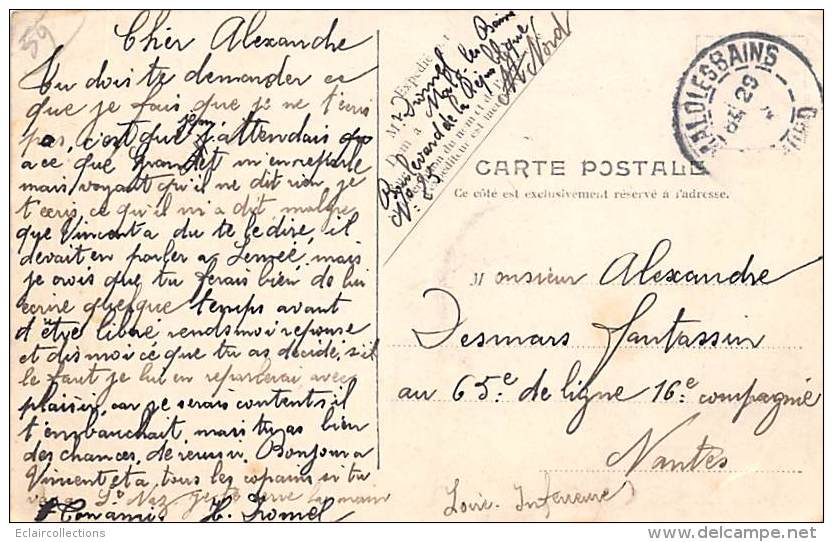 59
Cher Alexandre
Tu dois te demander ce
que je fais que je ne t'ecris
pas, c'est que j'attendais
a ce que Grandet m'en reparle
mais voyant qu'il ne dit rien je
t'ecris, ce qu'il m'a dit malgre
que Vincent a du te le dire, il
devait en parler a Lemée, mais
je crois que tu ferais bien de lui
ecrire quelque temps avant
d'être libre rends moi reponse
et dis moi ce que tu as decidé, s'il
le faut je lui en reparlerai avec
plaisir, car je serais content s'il
t'embauchait, mais tu as bien
des chances, de reussir. Bonjour a
Vincent et a tous les copains si tu
St Naz. je te serre la main
Ton ami
Expédié
M
Malo les Bains
Boulevard de la République
No 25
Nord
CARTE POSTALE
Ce côté est exclusivement réservé à l'adresse.
MALO LES BAINS
29
Monsieur Alexandre
Desmars fantassin
au 65e de ligne 16e compagnie
Nantes
Loire Inferieure
Eclaircollections